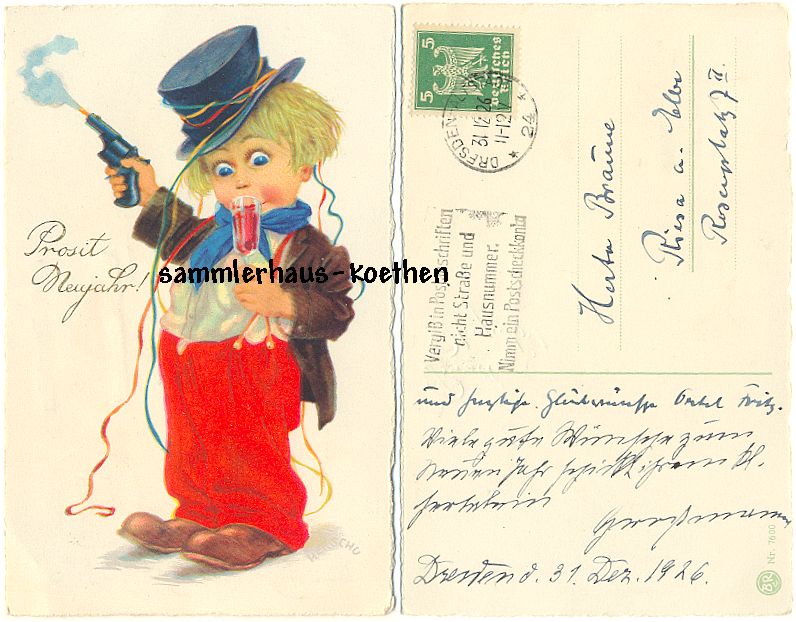 Prosit
Neujahr!
sammlerhaus-koethen
5 Deutsches Reich 5
DRESDEN
31.12.26
11-12
* 24 K
Vergiß in Postanschriften
nicht Straße und
Hausnummer.
Nimm ein Postscheckkonto
Herta Bräune
Riesa a. Elbe
Rosenplatz 7 II.
und herzliche Glückwünsche Onkel Fritz.
Viele gute Wünsche zum
Neuen Jahr schickt ihrem kl.
Hertelein
Großmama
Dresden d. 31. Dez. 1926.
Nr. 7600